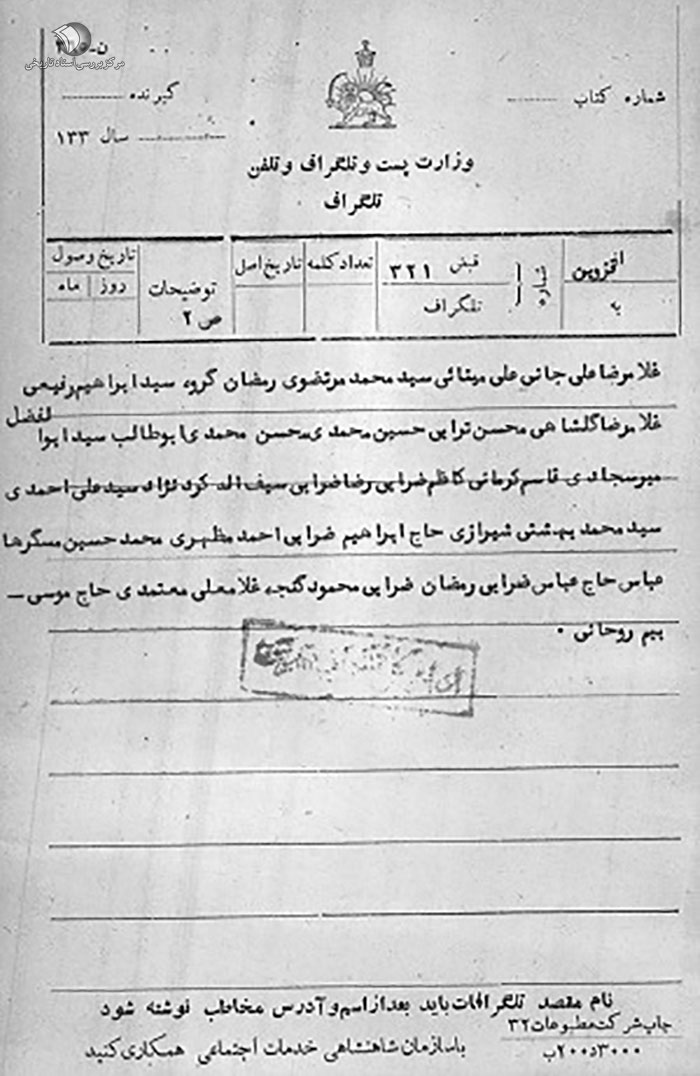 مرکز بررسی اسناد تاریخی
شماره کتاب
گیرنده
سال ۱۳۳
وزارت پست و تلگراف و تلفن
تلگراف
از قزوین
به
شماره
قبض ۳۲۱
تلگراف
تعداد کلمه
تاریخ اصل
توضیحات
ص ۲
تاریخ وصول
روز ماه
غلامرضا علی جانی علی میثائی سید محمد مرتضوی رمضان گروه سید ابراهیم رفیعی
غلامرضا گلشاهی محسن ترابی حسین محمدی محسن محمدی ابوطالب سید ابوا
لفضل
میرسجادی قاسم کرمانی کاظم ضرابی رضا ضرابی سیف اله کرد نژاد سید علی احمدی
سید محمد بهشتی شیرازی حاج ابراهیم ضرابی احمد مظهری محمد حسین مسگرها
عباس حاج عباس ضرابی رمضان ضرابی محمود گنجه غلامعلی معتمدی حاج موسی –
بیم روحانی ۰
نام مقصد تلگرافات باید بعد از اسم و آدرس مخاطب نوشته شود
چاپ شرکت مطبوعات ۳۲
۳۰۰۰د۲۰۰ب
با سازمان شاهنشاهی خدمات اجتماعی همکاری کنید